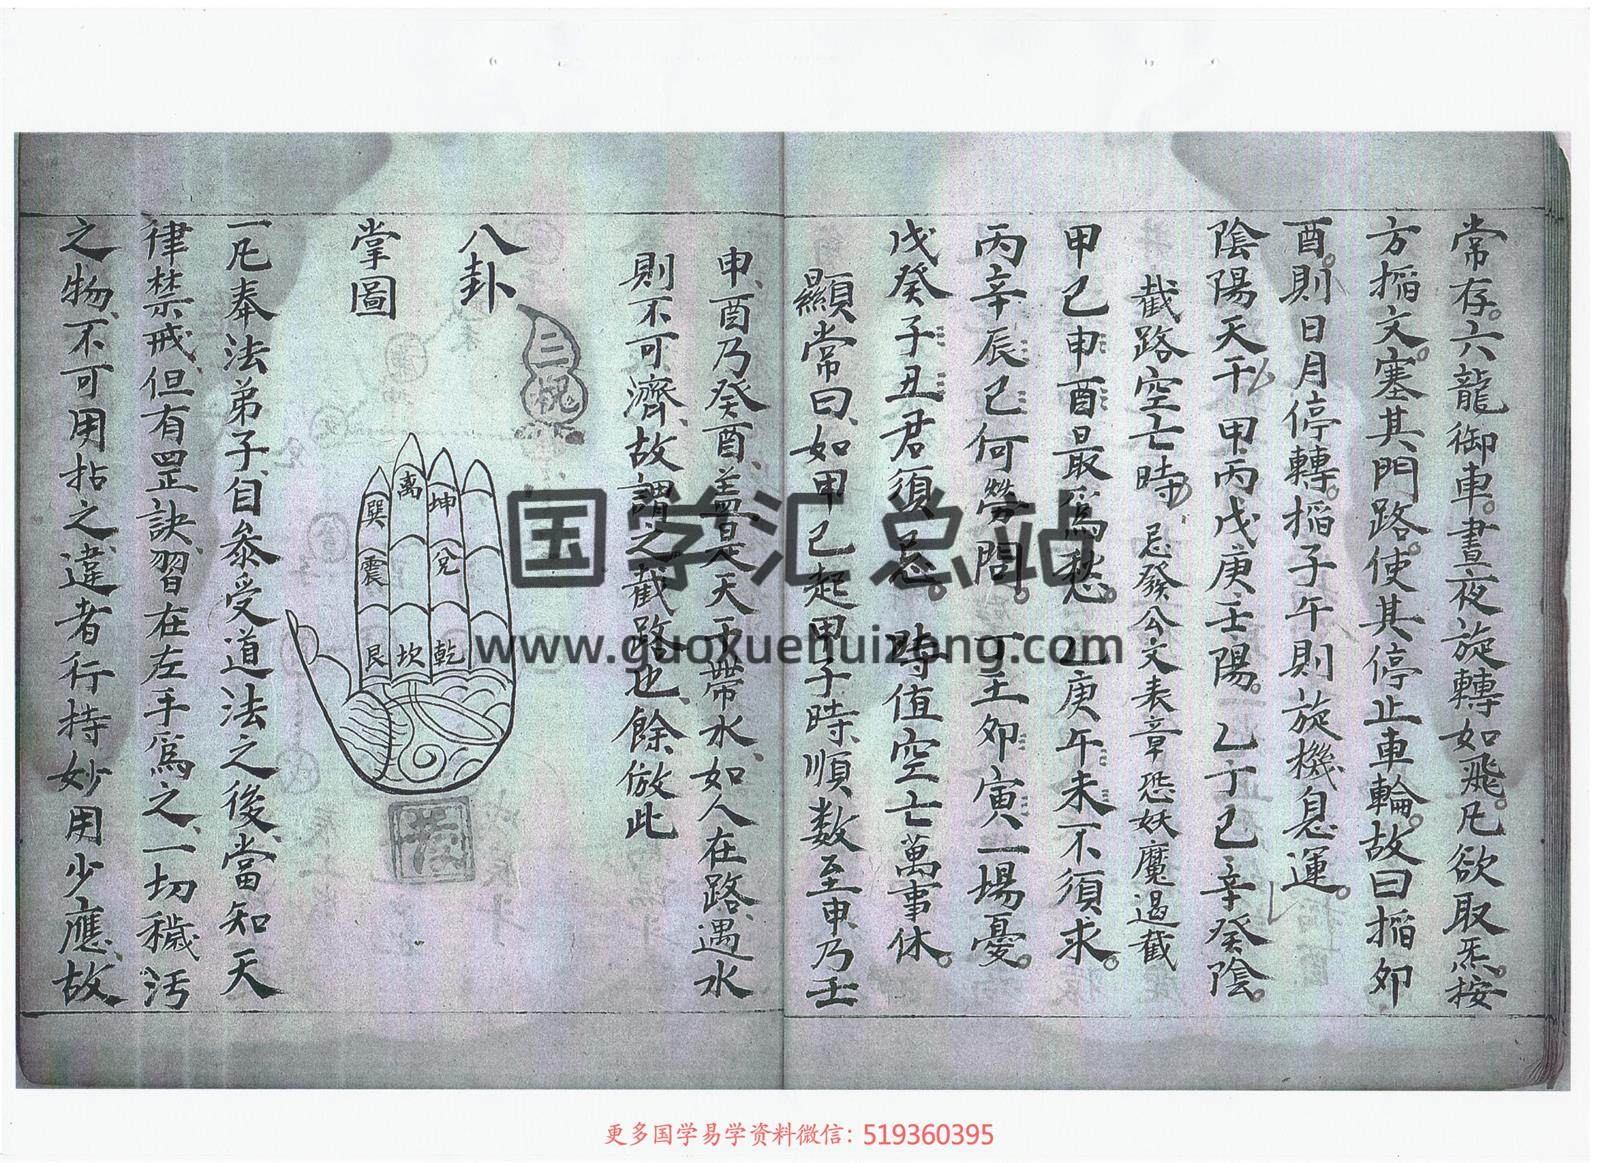 常存。六龍御車。晝夜旋轉如飛。凡欲取炁按
方搯文。塞其門路。使其停止車輪。故曰搯夘
酉。則日月停轉。搯子午則旋機息運。
陰陽天干 甲丙戊庚壬陽。乙丁己辛癸陰。
截路空亡時 忌發公文表章恐妖魔遏截
甲己申酉最爲愁。乙庚午未不須求。
丙辛辰巳何勞問。丁壬夘寅一場憂。
戊癸子丑君須忌。時值空亡萬事休。
顯常曰、如甲己起甲子時、順数至申、乃壬
申、酉乃癸酉、盖是天干帶水、如人在路、遇水
則不可濟、故謂之截路也、餘倣此
八卦
掌圖
巽 離 坤
震 兌
艮 坎 乾
一凡奉法弟子、自叅受道法之後、當知天
律禁戒、但有罡訣、習在左手爲之、一切穢汚
之物、不可用拈之、違者行持妙用少應、故
国学汇总站
www.guoxuehuizong.com
更多国学易学资料微信：519360395